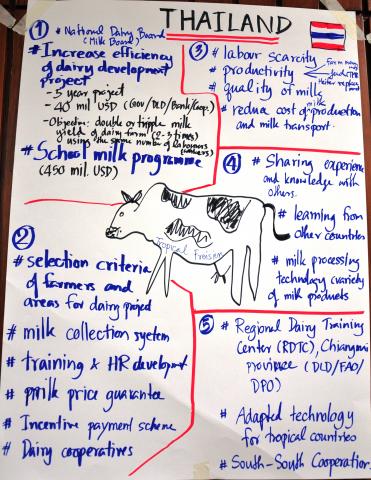 THAILAND
① * National Dairy Board
(Milk Board)
# Increase efficiency
of dairy development
project
- 5 year project
- 40 mil USD (Gov/DLD/Bank/Coop.)
- Objective: double or triple milk
yield of dairy farm (2-3 times)
using the same number of labourers
# School milk programme
(450 mil. USD)
② # selection criteria
of farmers and
areas for dairy project
# milk collection system
# training & HR developmt
# milk price guarantee
# Incentive payment scheme
# Dairy cooperatives
③ # labour scarcity
# productivity
# quality of milk
# reduce cost of milk production
and milk transport
④ # Sharing experience
and knowledge with
others.
# learning from
other countries
# milk processing
technology (variety
of milk products
tropical freisian
⑤ # Regional Dairy Training
Center (RDTC), Chiangmai
province (DLD/FAO/
DPO)
# Adapted technology
for tropical countries
# South-South Cooperation